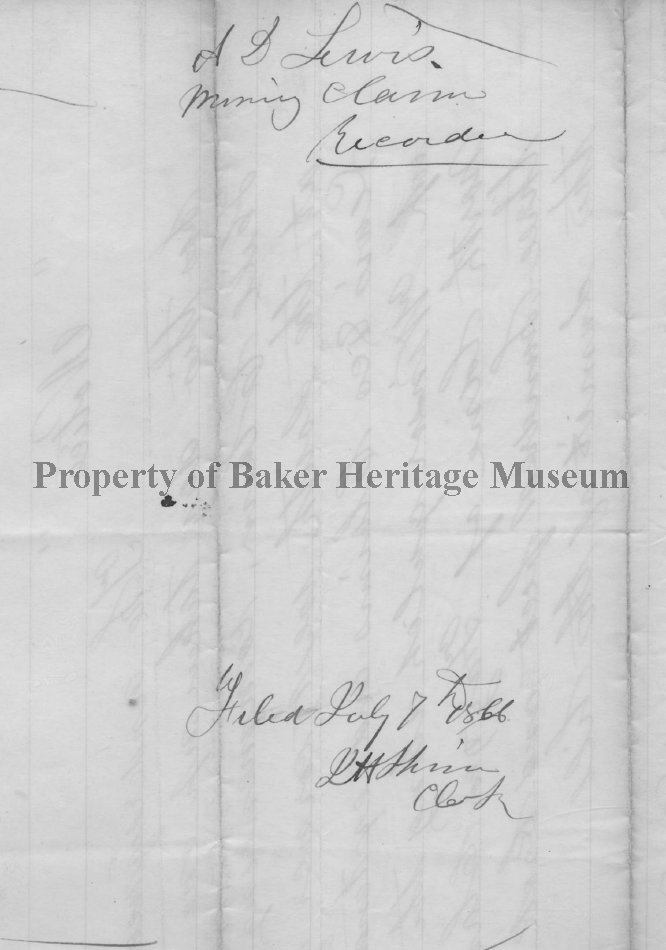 A D Lewis
Mining Claim
Recorder
Property of Baker Heritage Museum
Filed July 7th 1866
Clerk